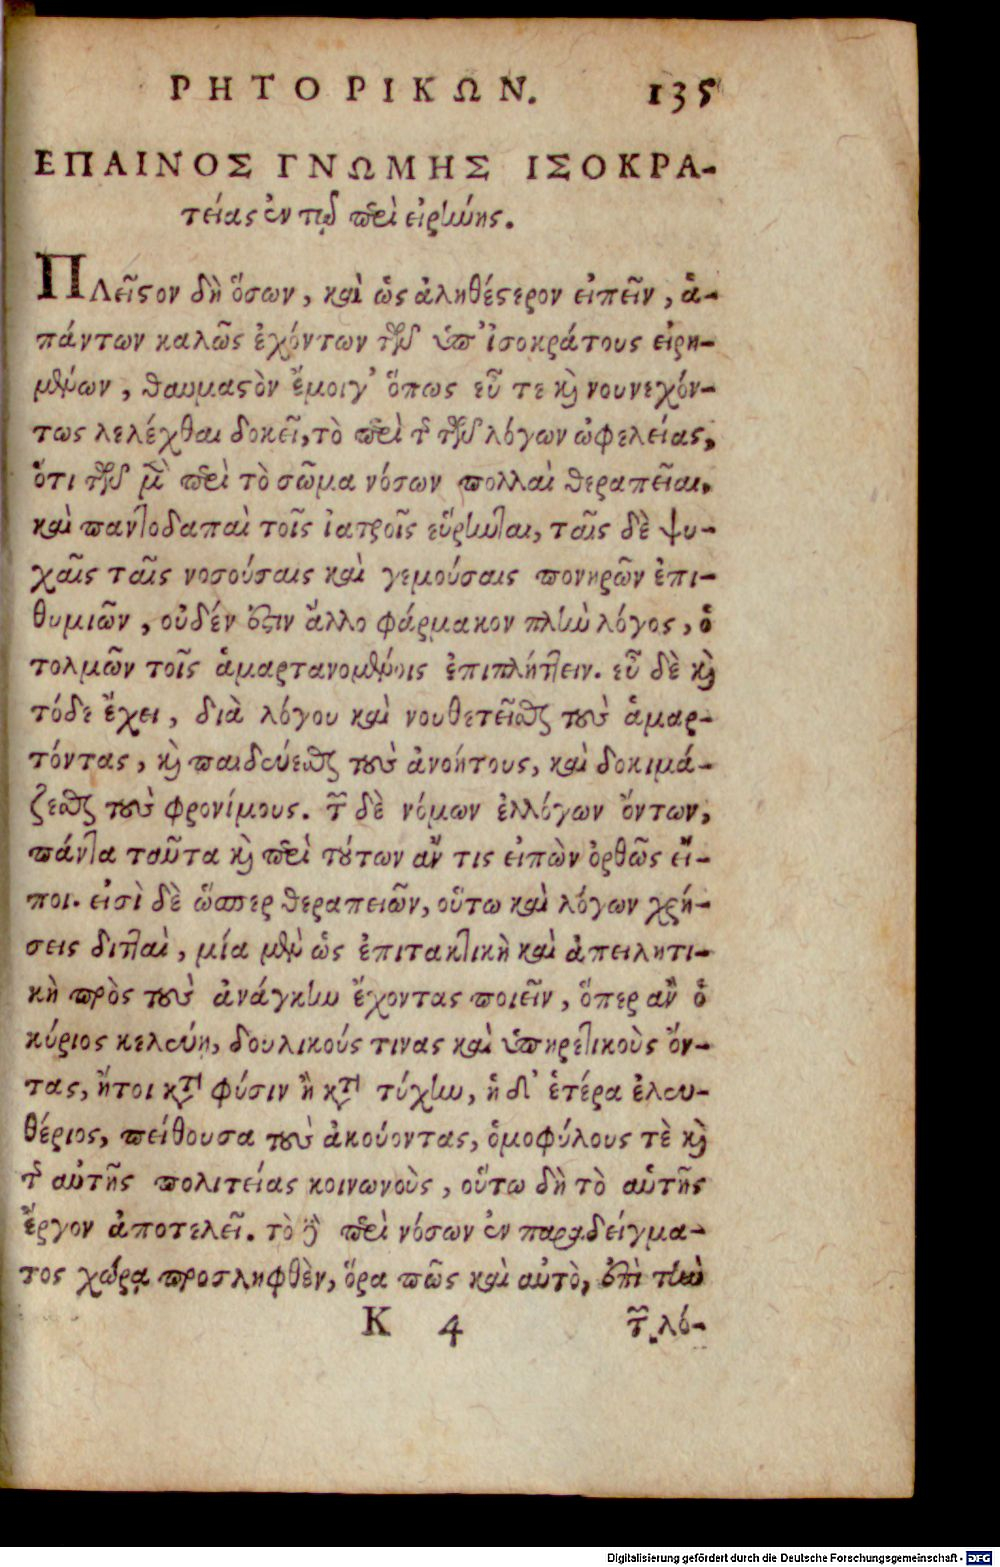 ΡΗΤΟΡΙΚΩΝ. 135
ΕΠΑΙΝΟΣ ΓΝΩΜΗΣ ΙΣΟΚΡΑ-
τείας ἐν τῷ περὶ εἰρήνης.
Πλεῖστον δὴ ὅσων, καὶ ὡς ἀληθέστερον εἰπεῖν, ἁ-
πάντων καλῶς ἐχόντων τῶν ὑπ' ἰσοκράτους εἰρη-
μένων, θαυμαστὸν ἔμοιγ' ὅπως εὖ τε καὶ νουνεχόν-
τως λελέχθαι δοκεῖ, τὸ περὶ τῆς τῶν λόγων ὠφελείας,
ὅτι τῶν μὲν περὶ τὸ σῶμα νόσων πολλαὶ θεραπεῖαι,
καὶ παντοδαπαὶ τοῖς ἰατροῖς εὕρηνται, ταῖς δὲ ψυ-
χαῖς ταῖς νοσούσαις καὶ γεμούσαις πονηρῶν ἐπι-
θυμιῶν, οὐδέν ἐστιν ἄλλο φάρμακον πλὴν λόγος, ὁ
τολμῶν τοῖς ἁμαρτανομένοις ἐπιπλήττειν. εὖ δὲ καὶ
τόδε ἔχει, διὰ λόγου καὶ νουθετεῖσθαι τοὺς ἁμαρ-
τόντας, καὶ παιδεύεσθαι τοὺς ἀνοήτους, καὶ δοκιμά-
ζεσθαι τοὺς φρονίμους. τῶν δὲ νόμων ἐλλόγων ὄντων,
πάντα ταῦτα καὶ περὶ τούτων ἄν τις εἰπὼν ὀρθῶς εἴ-
ποι. εἰσὶ δὲ ὥσπερ θεραπειῶν, οὕτω καὶ λόγων χρή-
σεις διτταὶ, μία μὲν ὡς ἐπιτακτικὴ καὶ ἀπειλητι-
κὴ πρὸς τοὺς ἀνάγκην ἔχοντας ποιεῖν, ὅπερ ἂν ὁ
κύριος κελεύῃ, δουλικούς τινας καὶ ὑπηρετικοὺς ὄν-
τας, ἤτοι κατὰ φύσιν ἢ κατὰ τύχην, ἡ δ' ἑτέρα ἐλευ-
θέριος, πείθουσα τοὺς ἀκούοντας, ὁμοφύλους τὲ καὶ
τῆς αὐτῆς πολιτείας κοινωνοὺς, οὕτω δὴ τὸ αὑτῆς
ἔργον ἀποτελεῖ. τὸ γὰρ περὶ νόσων ἐν παραδείγμα-
τος χώρᾳ προσληφθὲν, ὅρα πῶς καὶ αὐτὸ, ἐπὶ τὴν
Κ 4 τῶν λό-
Digitalisierung gefördert durch die Deutsche Forschungsgemeinschaft - DFG